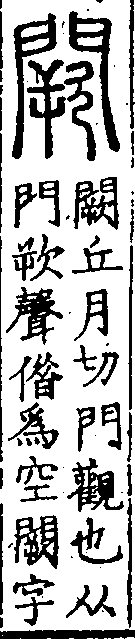 闕
闕丘月切門觀也从
門欮聲僭爲空闕字